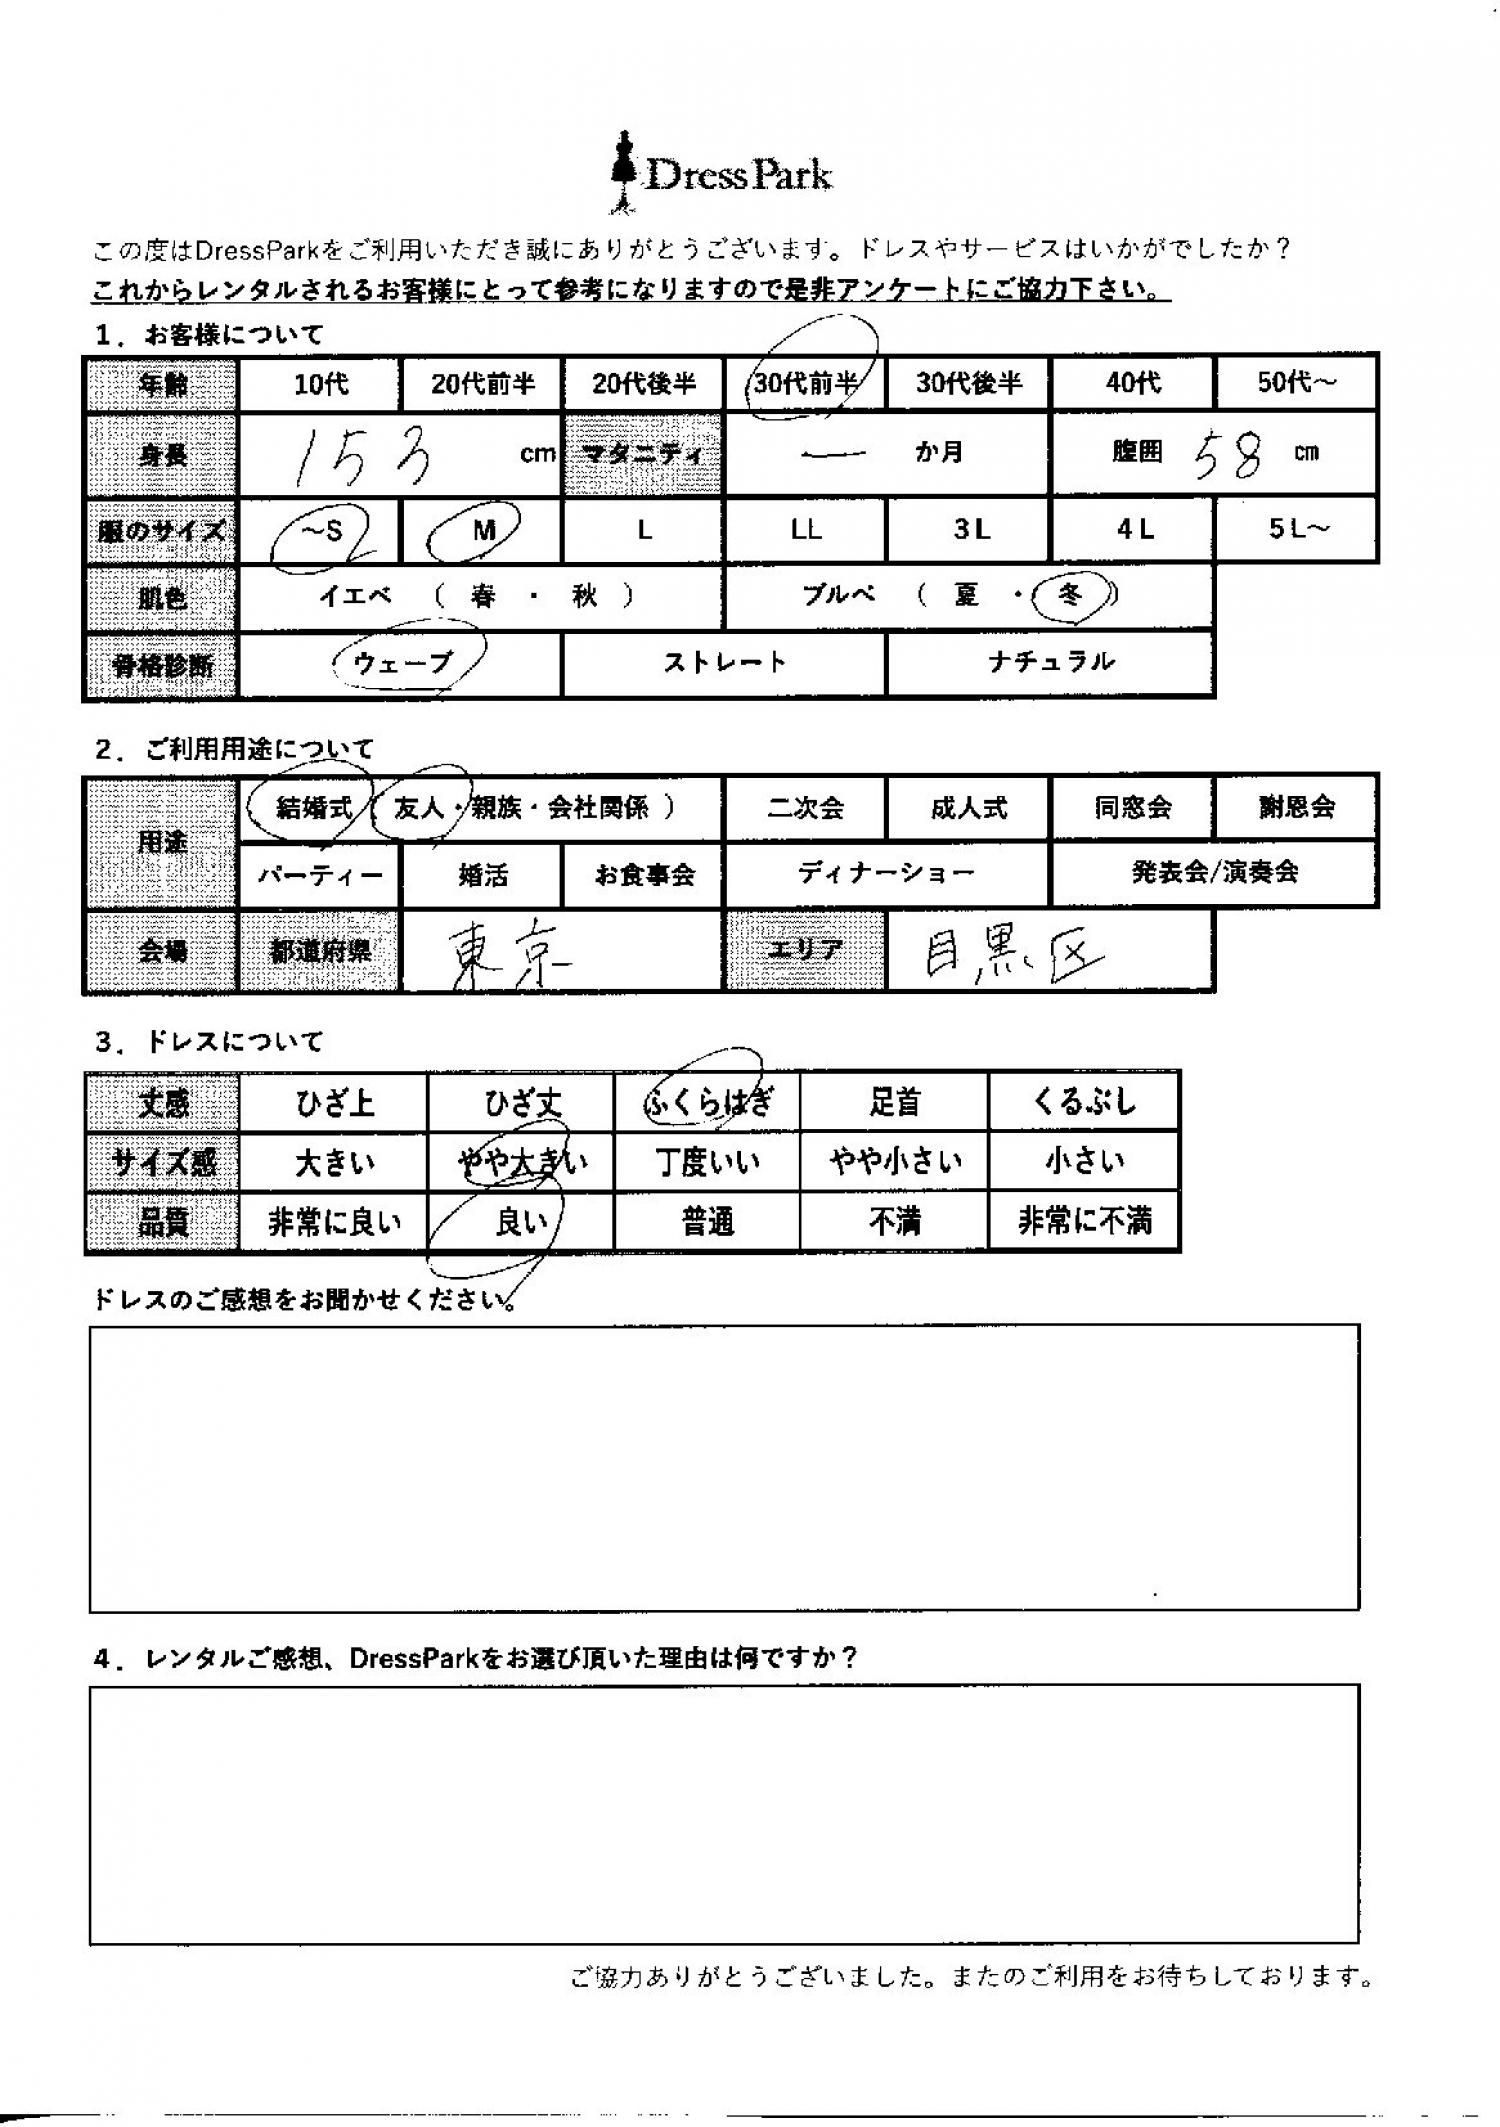 DressPark
この度はDressParkをご利用いただき誠にありがとうございます。ドレスやサービスはいかがでしたか？
これからレンタルされるお客様にとって参考になりますので是非アンケートにご協力下さい。
1．お客様について
年齢 10代 20代前半 20代後半 30代前半 30代後半 40代 50代～
身長 153 cm マタニティ ー か月 腹囲 58 cm
服のサイズ ～S M L LL 3L 4L 5L～
肌色 イエベ （ 春 ・ 秋 ） ブルベ （ 夏 ・ 冬 ）
骨格診断 ウェーブ ストレート ナチュラル
2．ご利用用途について
用途 結婚式（ 友人・親族・会社関係 ） 二次会 成人式 同窓会 謝恩会
パーティー 婚活 お食事会 ディナーショー 発表会/演奏会
会場 都道府県 東京 エリア 目黒区
3．ドレスについて
丈感 ひざ上 ひざ丈 ふくらはぎ 足首 くるぶし
サイズ感 大きい やや大きい 丁度いい やや小さい 小さい
品質 非常に良い 良い 普通 不満 非常に不満
ドレスのご感想をお聞かせください。
4．レンタルご感想、DressParkをお選び頂いた理由は何ですか？
ご協力ありがとうございました。またのご利用をお待ちしております。